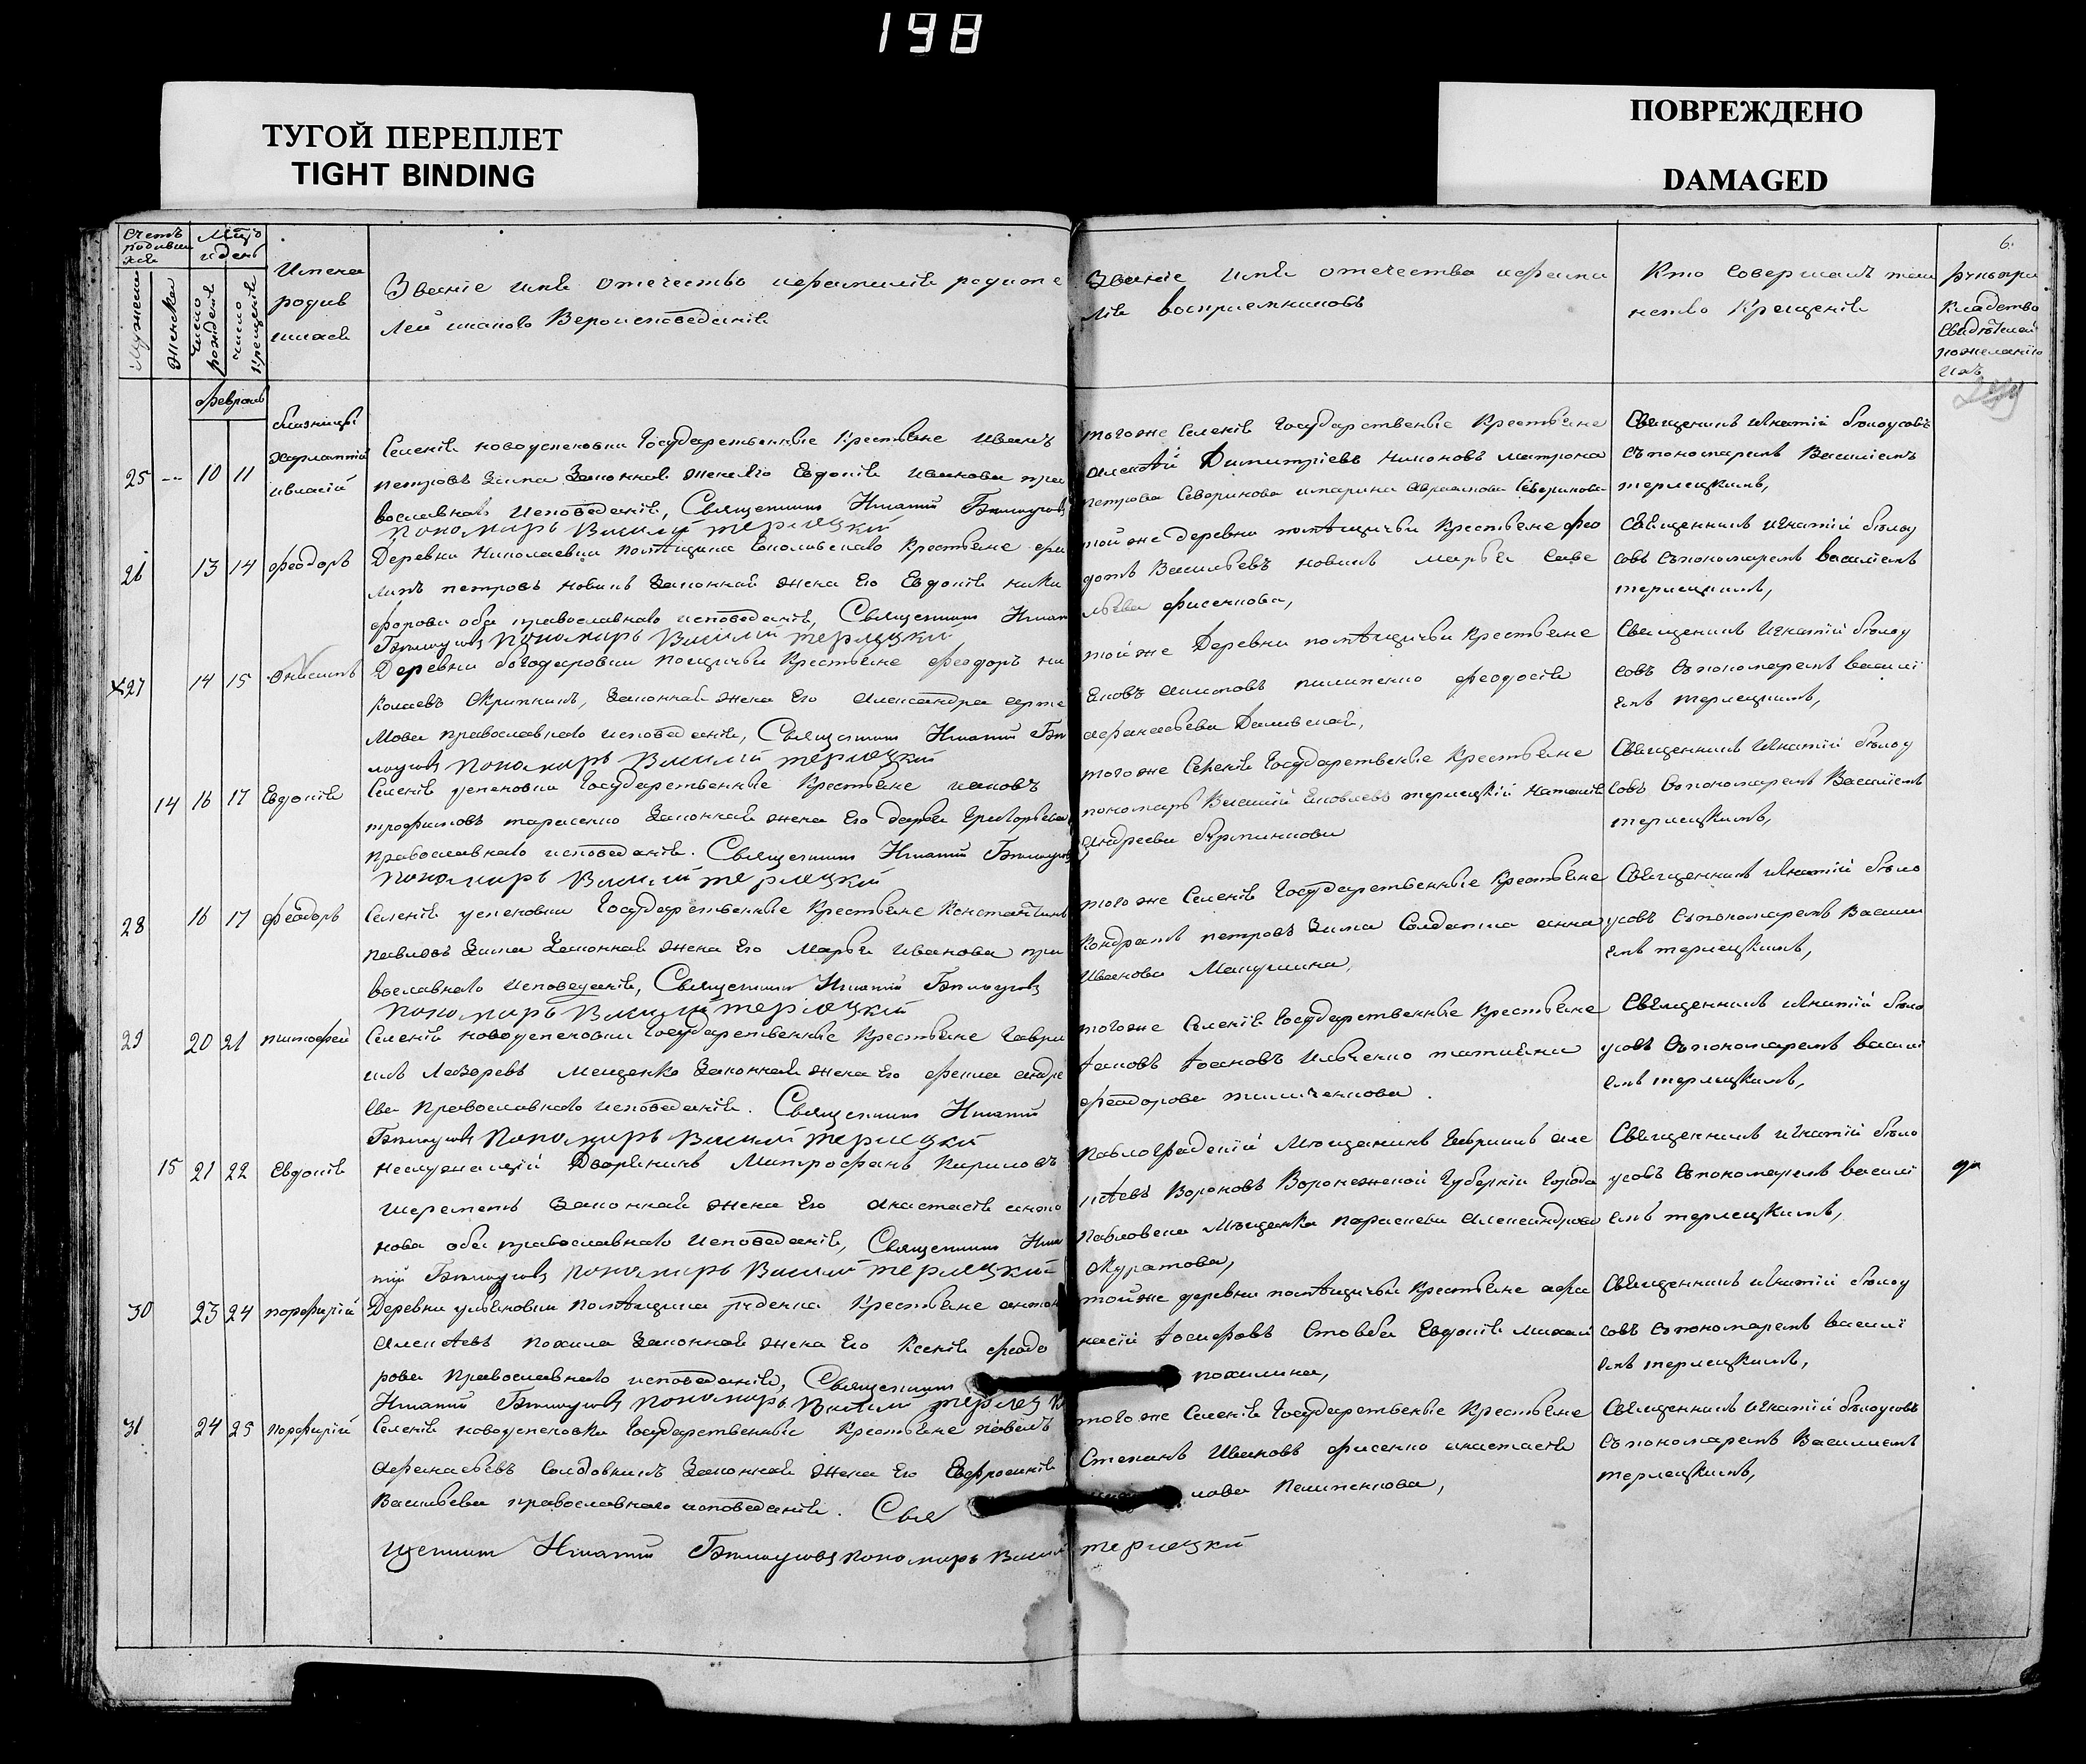 198
ТУГОЙ ПЕРЕПЛЕТ
TIGHT BINDING
ПОВРЕЖДЕНО
DAMAGED
6.
Счетъ
Мужеска
Женска
число рожденія
число крещенія
Имена
родив
шихся
Званіе имя отечество ифамилія родите
лей икакого Вероисповеданія
Званіе имя отечество ифами
лія восприемниковъ
Кто Совершалъ таи
нство Крещенія
февраль
близнецы
25 -- 10 11
Харлампій
ивласій
Селенія новоуспеновки Государственные Крестьяне Иванъ
петровъ Зима Законная жена его Евдокія иванова пра
вославнаго исповеданія, Священникъ Игнатій Бѣлоусовъ
пономарь Василій терлецкій
тогоже Селенія Государственные Крестьяне
алексѣй Димитріевъ Матрона
петрова Северинова имарина Северинова
Священникъ игнатій бѣлоусовъ
съпономаремъ Василіемъ
терлецкимъ,
26 13 14 феодоръ
Деревни Николаевки помѣщика Крестьяне фи
липъ петровъ новикъ Законная жена его Евдокія ники
форова оба православнаго исповеданія, Священникъ Игнат
Бѣлоусовъ пономарь Василій терлецкій
тойже деревни помѣщичьи Крестьяне фео
дотъ Васильевъ новикъ марья саве
льева фисенкова,
Священникъ игнатій бѣлоу
совъ съпономаремъ василіемъ
терлецкимъ,
x27 14 15 Онисимъ
Деревни богодаровки помещичьи Крестьяне феодоръ ни
колаевъ Скрипникъ, Законная жена его Александра арте
мова православнаго исповеданія, Священникъ Игнатій Бѣ
лоусовъ пономарь Василій терлецкій
тойже Деревни помѣщичьи Крестьяне
пилипенко феодосія
афанасьева
Священникъ Игнатій бѣлоу
совъ съпономаремъ васили
емъ терлецкимъ,
14 16 17 Евдокія
Селенія успеновки Государственные Крестьяне иаковъ
трофимовъ тарасенко Законная жена его дарья Григорьева
православнаго исповеданія. Священникъ Игнатій Бѣлоусовъ
пономарь Василій терлецкій
тогоже Селенія Государственные Крестьяне
пономарь Василій Яковлевъ терлецкій наталія
андреева
Священникъ Игнатій бѣлоу
совъ съпономаремъ Василіемъ
терлецкимъ,
28 16 17 феодоръ
Селенія успеновки Государственные Крестьяне Константинъ
павловъ Зима Законная жена его Марья иванова пра
вославнаго исповеданія, Священникъ Игнатій Бѣлоусовъ
пономарь Василій терлецкій
тогоже Селенія Государственные Крестьяне
Кондратъ петровъ Зима Солдатка анна
иванова
Священникъ игнатій бѣло
усовъ съпономаремъ Васили
емъ терлецкимъ,
29 20 21 тимофей
Селенія новоуспеновки Государственные Крестьяне гаври
илъ Лазоревъ Мещенко Законная жена его фекла андре
ева Православнаго исповеданія. Священникъ Игнатій
Бѣлоусовъ пономарь Василій терлецкій
тогоже Селенія Государственные Крестьяне
Іаковъ Іоановъ Ильченко татияна
феодорова
Священникъ игнатій бѣло
усовъ съпономаремъ васили
емъ терлецкимъ,
15 21 22 Евдокія
неслужащій Дворянинъ Митрофанъ Кириловъ
Шереметъ Законная жена его Анастасія анто
нова оба православнаго исповеданія, Священникъ Игна
тій Бѣлоусовъ пономарь Василій терлецкій
павлоградскій Мѣщанинъ Гавриилъ але
ксѣевъ Вороновъ Воронежской Губерніи города
павловска Мѣщанка параскева александрова
Муратова,
Священникъ игнатій бѣло
усовъ съпономаремъ васили
емъ терлецкимъ,
30 23 24 порфирій
Деревни ульяновки помѣщика Крестьяне антонъ
Алексѣевъ похила Законная жена его Ксенія феодо
рова Православнаго исповеданія, Священникъ
Игнатій Бѣлоусовъ пономарь Василій терлец
тойже деревни помѣщичьи Крестьяне афа
насій Іосифовъ Стовба Евдокія михаи
похилина,
Священникъ игнатій бѣлоу
совъ съпономаремъ васили
емъ терлецкимъ,
31 24 25 порфирій
Селенія новоуспеновки Государственные Крестьяне павелъ
Афанасьевъ Законная жена его Евфросинія
Васильева православнаго исповеданія. Свя
щенникъ Игнатій Бѣлоусовъ пономарь Василій терлецкій
тогоже Селенія Государственные Крестьяне
Степанъ Ивановъ фисенко анастасія
лова Пилипенкова,
Священникъ Игнатій бѣлоусовъ
съпономаремъ Василіемъ
терлецкимъ,